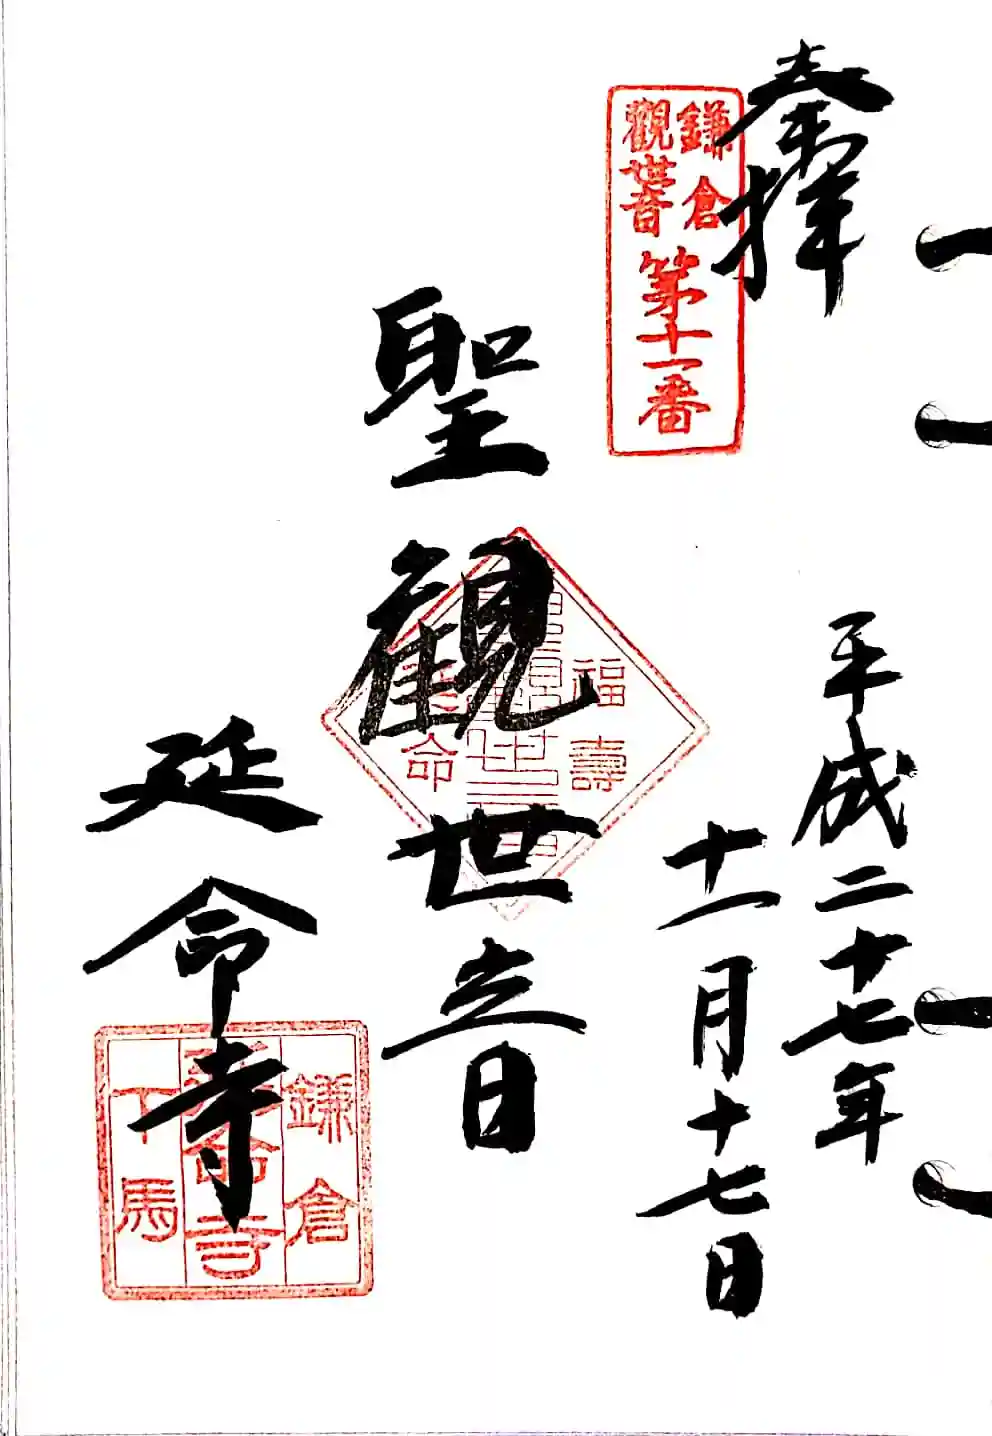 奉拝
鎌倉
観世音
第十一番
平成二十七年
十一月十七日
聖観世音
福壽
命
延命寺
鎌倉
延命寺
下馬